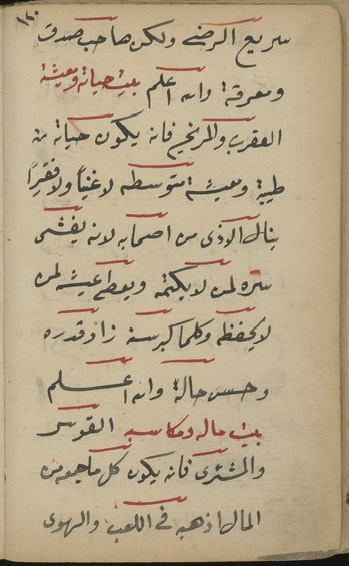 ١٨٠
سريع الرضى ولكن صاحب صدق
ومعرفة والله اعلم بيت حياته ومعيشته
العقرب والمريخ فانه يكون حياته
طيبة ومعيشته متوسطه لا غنياً ولا فقيراً
ينال الاذى من اصحابه لانه يفشى
سره لمن لا يكتمه ويعطى عيشه لمن
لا يحفظه وكلما كبر سنه زاد قدره
وحسن حاله والله اعلم
بيت ماله ومكاسبه القوس
والمشترى فانه يكون كل ما جمع من
المال اذهبه فى اللعب والهوى